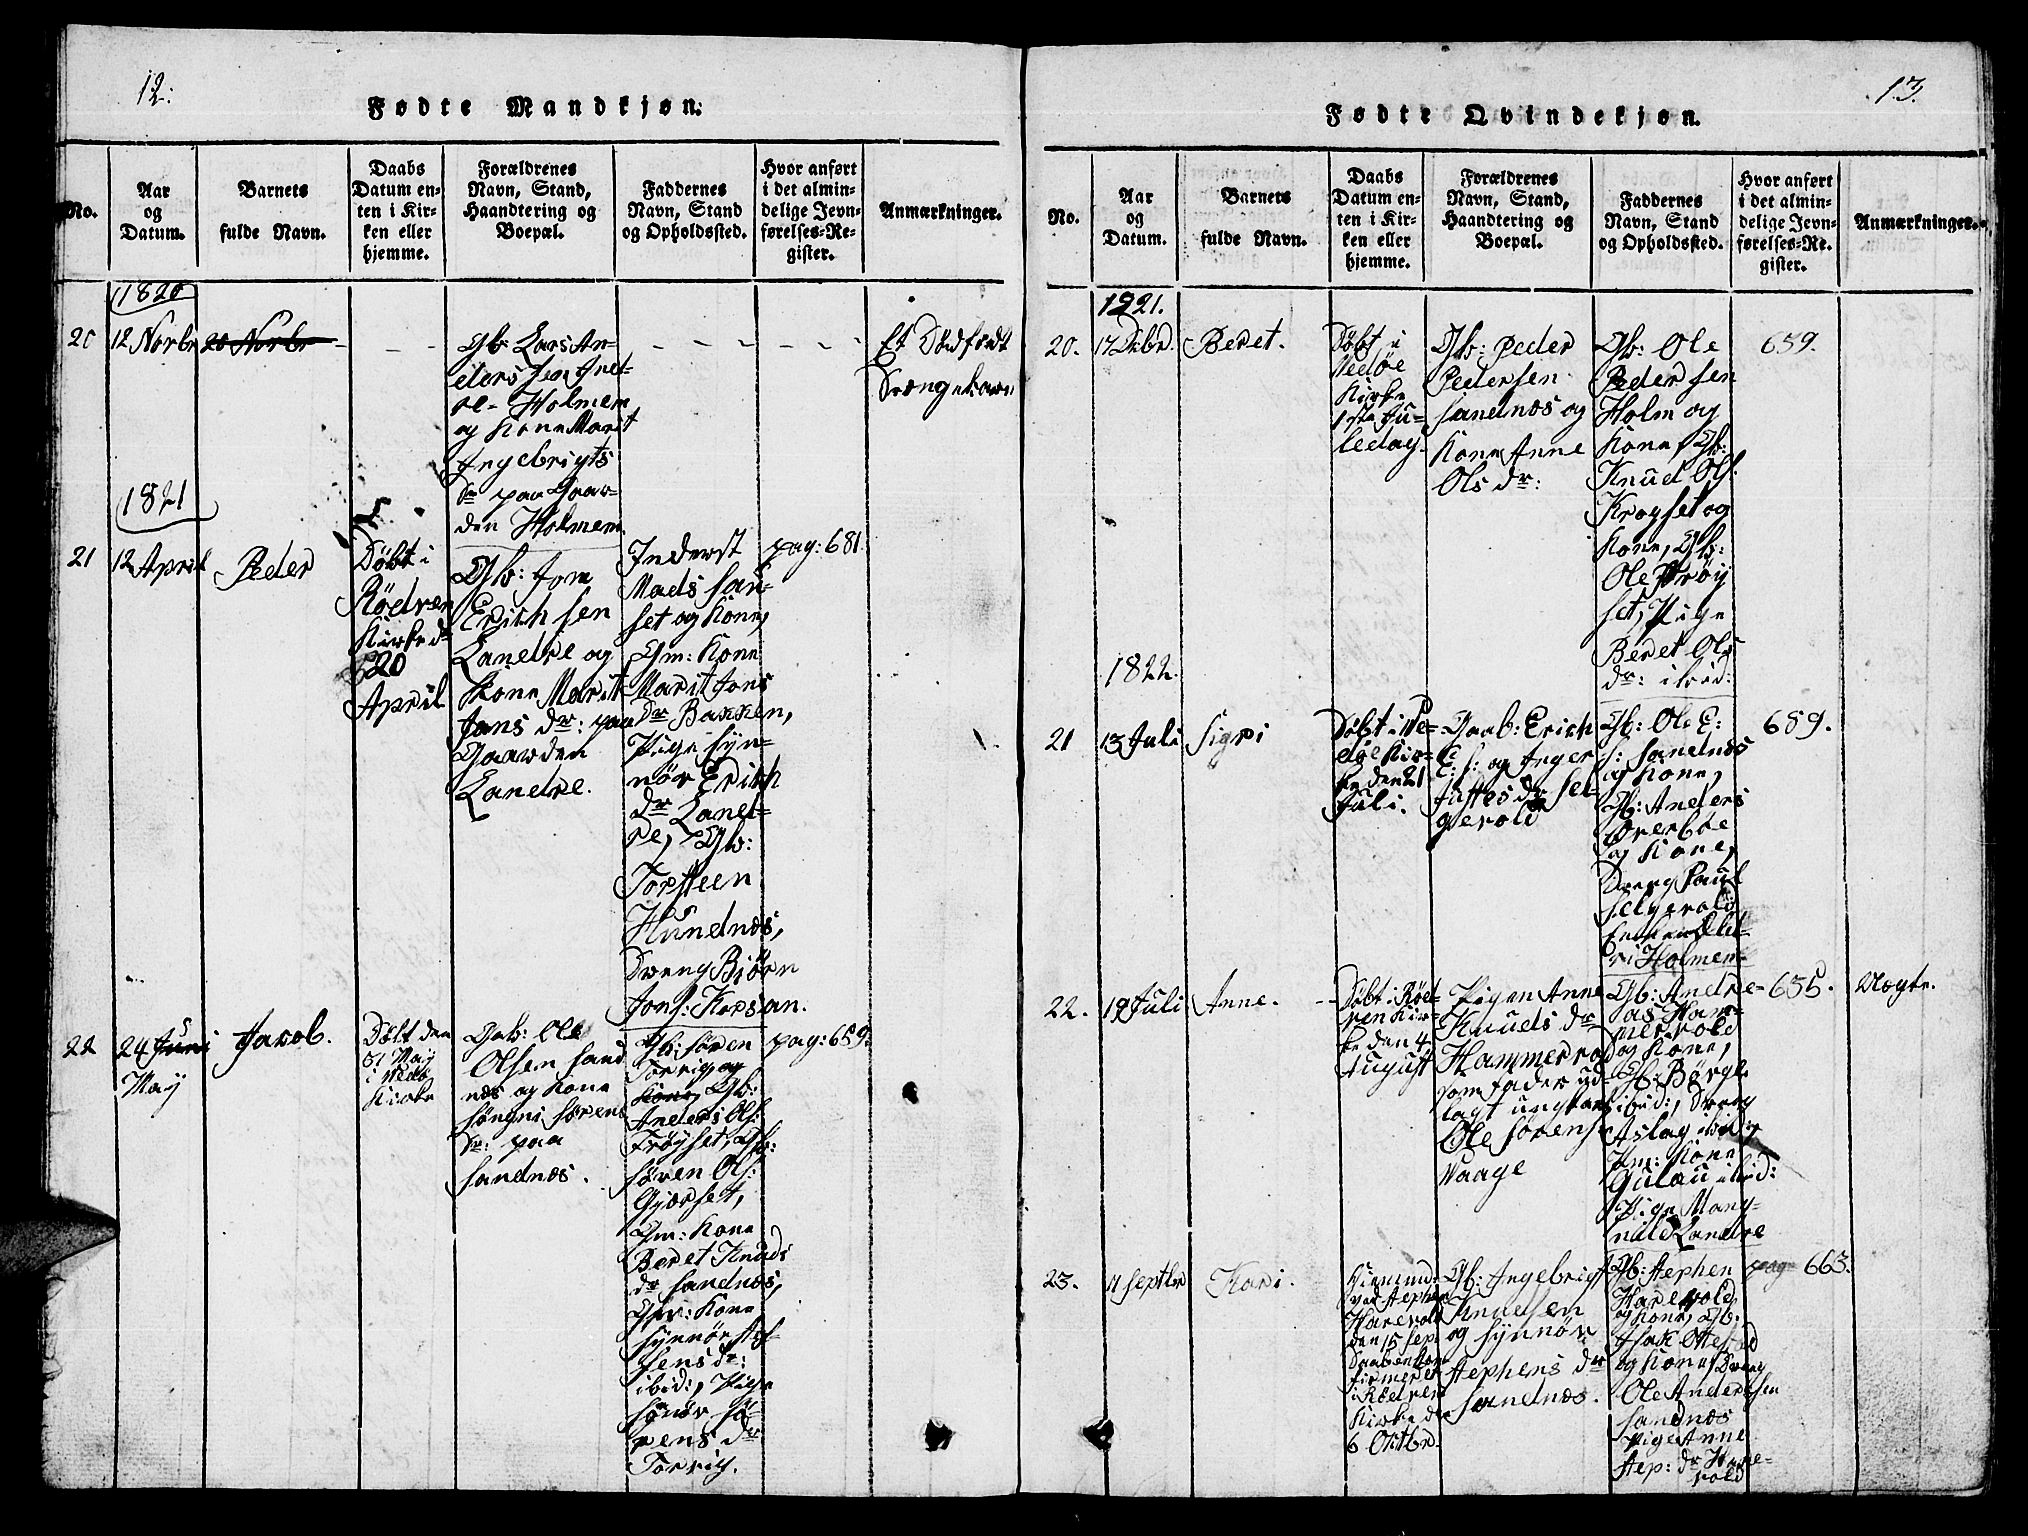 12.
Fødte Mandkjøn.
No.
Aar
og
Datum.
Barnets
fulde Navn.
Daabs
Datum en-
ten i Kir-
ken eller
hjemme.
Forældrenes
Navn, Stand,
Haandtering og
Boepæl.
Faddernes
Navn, Stand
og Opholdssted.
Hvor anført
i det almin-
delige Jevn-
førelses-Re-
gister.
Anmærkninger.
1820
20
12 Novbr
20 Novbr
Gb Lars An-
ders sen Ind-
re-Holmem
og Kone Marit
Ingebrigts
Dr paa Gaar-
den Holmem
Et Dødfødt
Drængebarn
1821
21
12 April
Peder
Døbt i
Rødven
Kirke d
20
April
Gb: Jon
Erich sen
Landre og
Kone Marit
Jons dr: paa
Gaarden
Landre.
Inderst
Mads San-
set og Kone,
Gm: Kone
Marit Jons
Dr Bakken,
Pige Syn-
nøv Erich
dr Land-
re, Gb:
Torsteen
Hundnæs,
Dreng Biørn
Jons: Korsan.
pag: 681.
22
24 Juni
May
Jacob.
Døbt den
31 May
i Vedø
Kirke
Gb: Ole
Olsen Sand
næs og Kone
Søngni Sørens
Dr: paa
Sandnæs.
Gb: Søren
Torvig og
Kone, Gb:
Anders Ols:
Frøyset, Gb:
Søren Ols:
Gjørset,
Gm: Kone
Beret Knuds
dr Sandnæs,
Gm: Kone
Synnøv Stef-
fens dr:
ibid:, Pige
Synøv Sø-
rens dr
Torvig.
pag: 659.
13.
Fødte Qvindekjøn.
No.
Aar
og
Datum.
Barnets
fulde Navn.
Daabs
Datum en-
ten i Kir-
ken eller
hjemme.
Forældrenes
Navn, Stand,
Haandtering og
Boepæl.
Faddernes
Navn, Stand
og Opholdssted.
Hvor anført
i det almin-
delige Jevn-
førelses-Re-
gister.
Anmærkninger.
1821.
20.
17 Dcbr.
Beret.
Døbt i
Vedøe
Kirke
1ste Ju-
ledag.
Gb: Peder
Pedersen
Sandnæs og
Kone Anne
Ols dr:
Gb: Ole
Peder sen
Holm og
Kone, Gb:
Knud Ols:
Kroyset og
Kone, Gb:
Ole Frøy
set, Pige
Beret Ols
dr: ibid:
659.
1822.
21
13 Juli
Sigri
Døbt i Ve-
døe Kir-
ke den 21
Juli.
Gaab: Erich
E: S: og Inger
Justes dr Sel-
gevold
Gb: Ole E:
S: Sandnæs
og Kone,
Gb: Anders
Overbøe
og Kone,
Dreng Paul
Selgevold
Holmen
659.
22.
19 Juli
Anne.
Døbt i Rød-
ven Kir-
ke den 4
August
Pigen Anne
Knuds dr
Hammervold
som Fader ud-
lagt ungkarl
Ole Sørens:
Vaage
Gb: Andre-
as Ham-
mervold
og Kone,
Gb: Børge
ibid:, Dreng
Aslag ibid:
Gm: Kone
Gulau ibid:
Pige Mang-
nild Landre
655.
Uægte.
23.
11 Septbr
Kari.
Hiemmed:
ved Stephen
Harevold
den 15 Sep:
Daaben kon-
firmeret
i Rødven
Kirke den
6 Oktbr.
Gb: Ingebrigt
Knudsen
og Synnøv
Stephens dr
Sandnæs.
Gb: Stephen
Harevold
og Kone, Gb:
Isak Otte
og Kone, Dreng
Ole Andersen
Sandnæs
Pige Anne
Step: dr Hare-
vold
pag 663.